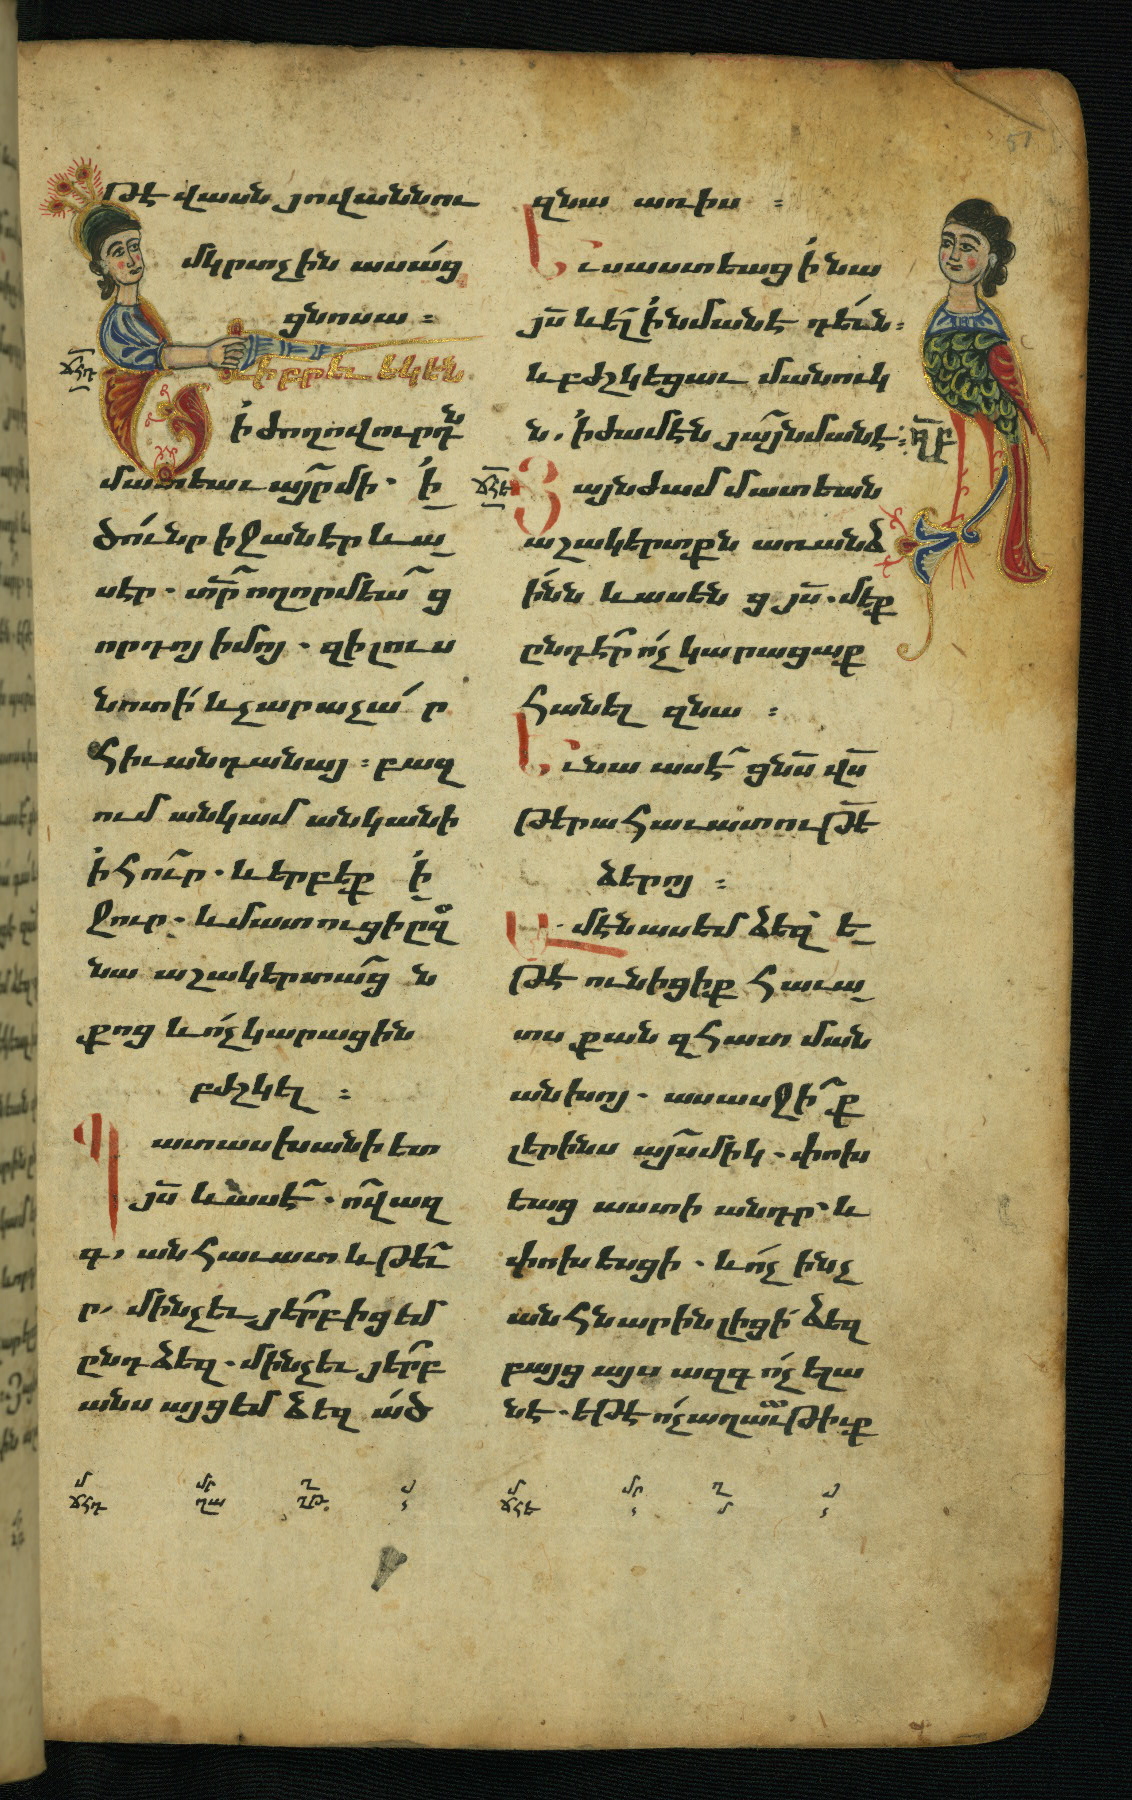 թէ վասն յովաննու
մկրտչին ասաց
ցնոսա ։
ճՀդ
Իբրեւ եկեն
ի ժողովուրդն
մատեաւ այր մի . ի
ծունր իջաներ և ա
սէր . տր ողորմեա ց
որդոյ իմոյ . զի լուս
նոտի և չարաչա ր
հիւանդանայ ։ բազ
ում անկամ անկանի
ի հուր . և երբեք ի
ջուր . և մատուցի ըզ
նա աշակերտաց ն
քոց և ոչ կարացին
բժշկել ։
Պատասխանի ետ
յս և ասէ . ով ազ
գ, անհաւատ և թեւ
ր, մինչեւ յերբ իցեմ
ընդ ձեզ . մինչեւ յերբ
անս այցեմ ձեզ ած
զնա առիս ։
Եւ սաստեաց ի նա
յս և ել ինմանէ դեւն ։
և բժշկեցաւ մանուկ
ն . ի ժամէն յայնմանէ ։
ճՀե
Յայնժամ մատեան
աշակերտքն առանձ
ինն և ասեն ց յս . մեք
ընդէր ոչ կարացաք
հանել զնա ։
Եւ նա ասէ ցնս վս
թերահաւատութե
ձերոյ ։
Ամէն ասեմ ձեզ ե
թէ ունիցիք հաւա
տս քան զհատ ման
անխոյ . ասասջի ք
լերինս այսմիկ . փոխ
եաց աստի անդր և
փոխեսցի . և ոչ ինչ
անհնարին լիցի ձեզ
բայց այս ազգ ոչ ելա
նէ . եթէ ոչ աղաւթիւք